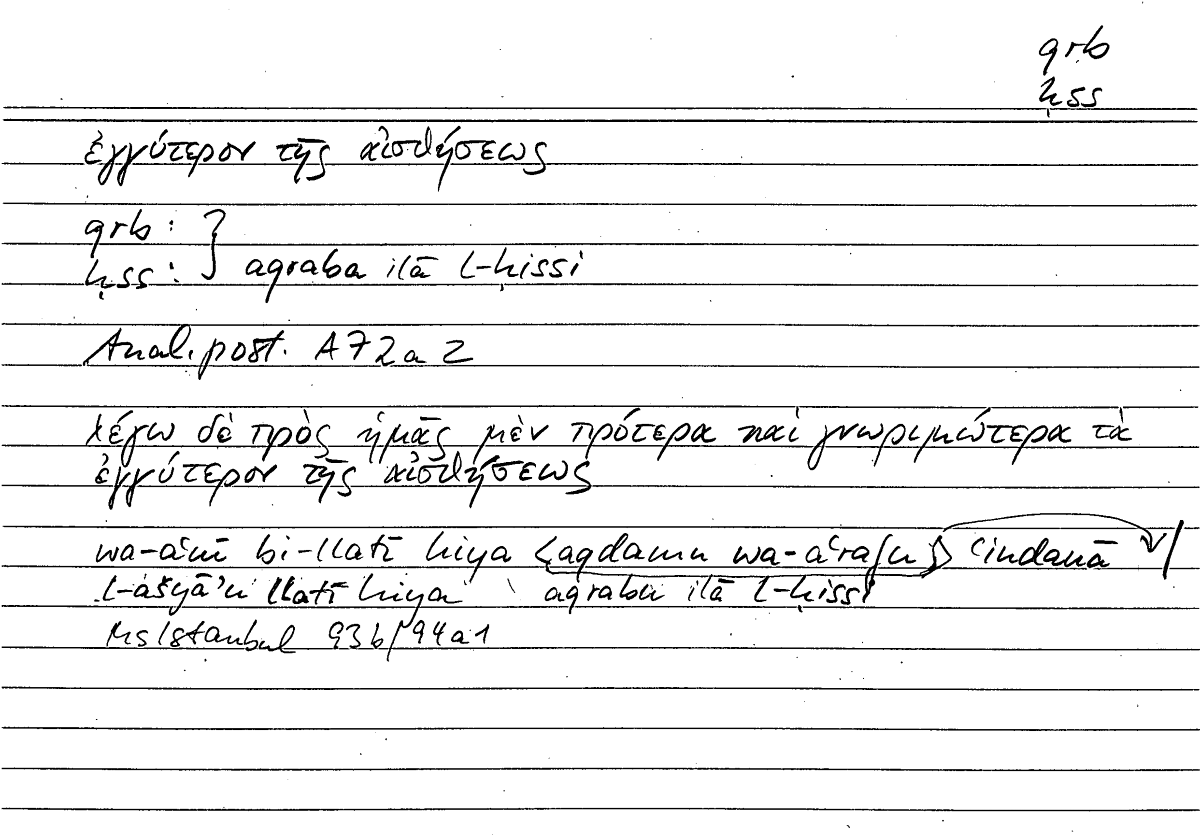 qrb
ḥss
ἐγγύτερον τῆς αἰσθήσεως
qrb : }
ḥss : } aqraba ilā l-ḥissi
Anal. post. A 72a2
λέγω δὲ πρὸς ἡμᾶς μὲν πρότερα καὶ γνωριμώτερα τὰ
ἐγγύτερον τῆς αἰσθήσεως
wa-aʿnī bi-llatī hiya <aqdamu wa-aʿrafu> ʿindanā /
l-ašyāʾu llatī hiya aqrabu ilā l-ḥissi
Ms Istanbul 93b/94a1